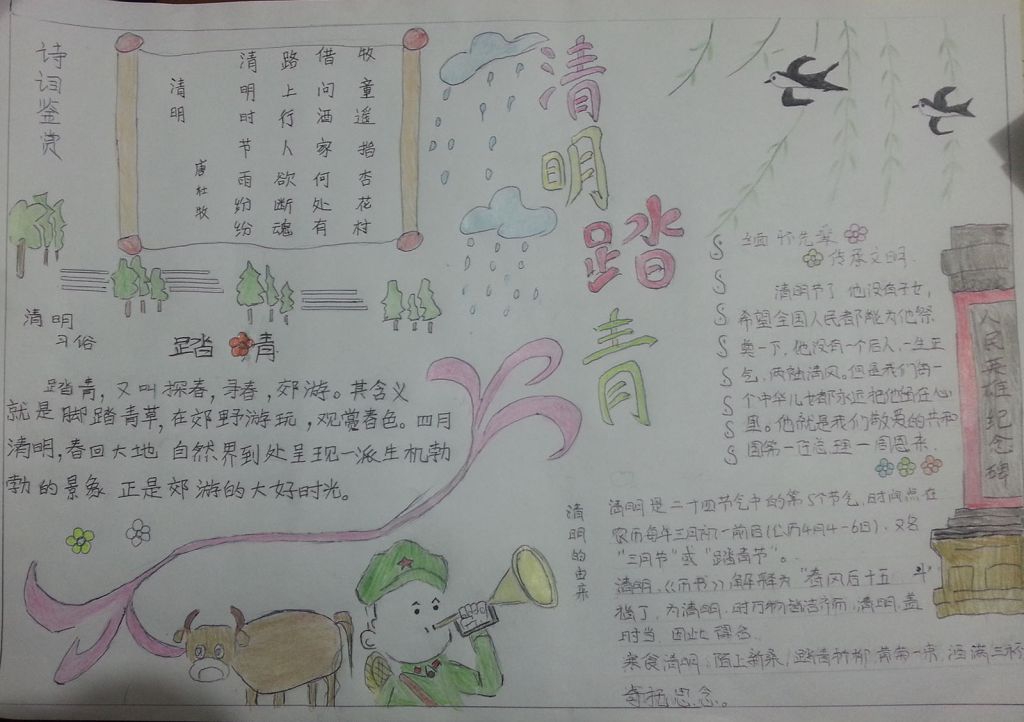 诗词鉴赏
清明
唐 杜牧
清明时节雨纷纷
路上行人欲断魂
借问酒家何处有
牧童遥指杏花村
清明踏青
清明
习俗
踏青
踏青,又叫探春,寻春,郊游。其含义
就是脚踏青草,在郊野游玩,观赏春色。四月
清明,春回大地 自然界到处呈现一派生机勃
勃的景象 正是郊游的大好时光。
缅怀先辈
传承文明
清明节了 他没有子女,
希望全国人民都能为他祭
奠一下,他没有一个后人,一生正
气,两袖清风。但是我们每一
个中华儿女都永远把他留在心
里。他就是我们敬爱的共和
国第一任总理—周恩来.
人民英雄纪念碑
清明的由来
清明是二十四节气中的第5个节气,时间点在
农历每年三月初一前后(公历4月4-6日),又名
“三月节”或“踏青节”。
清明,《历书》,解释为“春风后十五 斗
指丁,为清明,时万物皆洁齐而清明,盖
时当 因此得名.
寒食清明:陌上新桑,踏青祈柳
寄托思念。